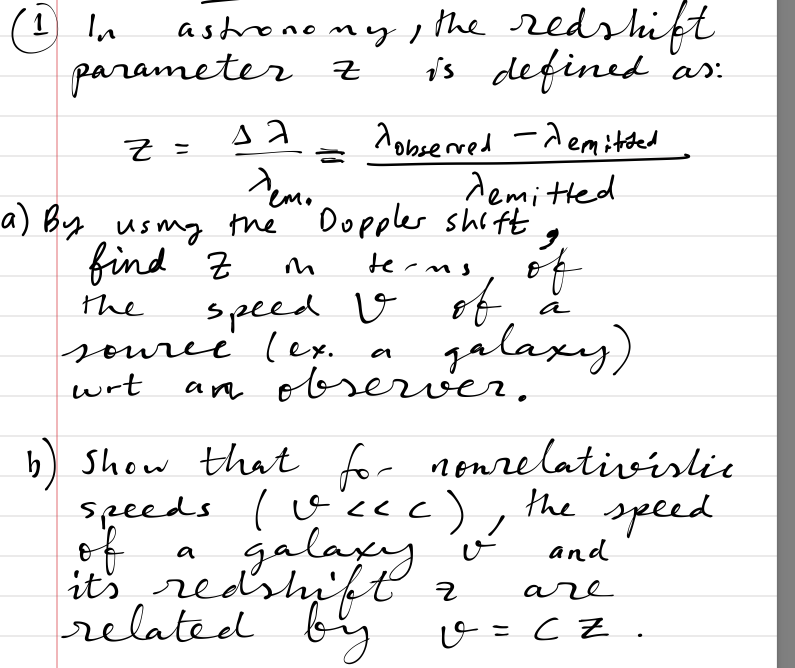 (1) In astronomy, the redshift
parameter z is defined as:
z = Δλ / λem. = λobserved - λemitted / λemitted
a) By using the Doppler shift,
find z in terms of
the speed v of a
source (ex. a galaxy)
wrt an observer.
b) Show that for nonrelativistic
speeds (v << c), the speed
of a galaxy v and
its redshift z are
related by v = cz.